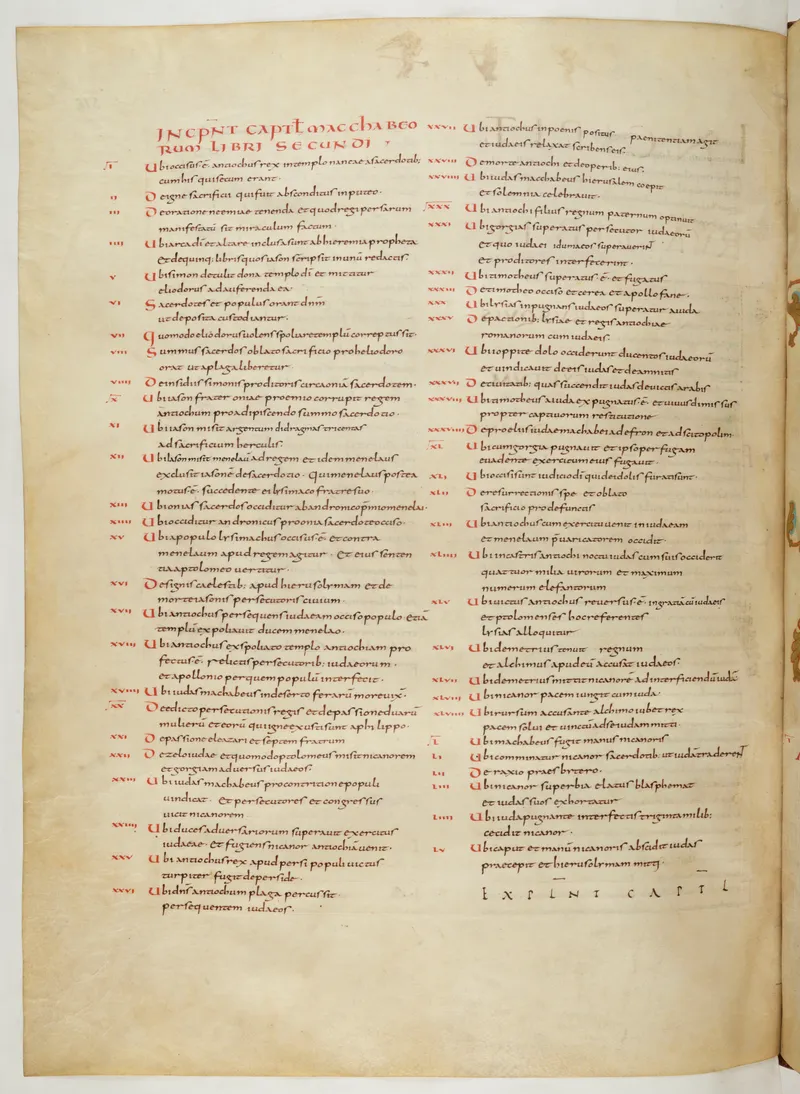 INCPNT CAPIT MACCHABEO
RUM LIBRI SECUNDI
I Ubi occisus ē antiochus rex in templo naneae a sacerdotib;
cum his qui secum erant·
II De igne sacrificii qui fuit absconditus in puteo·
III De oratione neemiae tenenda et quod regi persarum
manifestatū sit miraculum factum·
IIII Ubi arca dī et altare inclusa sunt ab hieremia propheta
et de quinq; libris quos iason scripsit in unū redactis·
V Ubi simon detulit dona templo dī et mittatur
eliodorus ad auferenda ea·
VI Sacerdotes et populus orant dnm
ut deposita custodiantur·
VII Quomodo eliodorus uolens spoliare templū correptus sit·
VIII Summus sacerdos oblato sacrificio pro heliodoro
orat ut a plaga liberetur
VIIII De insidiis simonis proditoris circa oniā sacerdotem·
X Ubi iason frater oniae proemio corrupit regem
antiochum pro adipiscendo summo sacerdotio·
XI Ubi iason misit argentum didragmas tricentas
ad sacrificium herculis·
XII Ubi iason misit menelaū ad regem et idem menelaus
exclusit iasonē de sacerdotio· Qui menelaus postea
motus ē· succedente ei lysimaco fratre suo·
XIII Ubi onias sacerdos occiditur ab andronico p̄mio menelai·
XIIII Ubi occiditur andronicus pro onia sacerdote occiso·
XV Ubi a populo lysimachus occisus ē et contra
menelaum apud regem agitur· Et eius senten
tia a ptolomeo uertitur·
XVI De signis caelestib; apud hierusolymam et de
morte iasonis persecutoris ciuium·
XVII Ubi antiochus persequens iudaeam occiso populo etiā
templū expoliauit ducem menelao·
XVIII Ubi antiochus exspoliato templo antiochiam pro
fectus ē· relictis persecutorib; iudaeorum·
et apollonio per quem populū interfecit·
XVIIII Ubi iudas machabeus in deserto ferarū more uix̄·
XX De edicto persecutionis regis et de passione duarū
mulierū et eorū qui igne exusti sunt a philippo·
XXI De passione eleazari et septem fratrum
XXII De zelo iudae et quomodo ptolomeus misit nicanorem
et gorgiam aduersus iudaeos·
XXIII Ubi iudas machabeus pro contritione populi
uindicat· Et persecutores et congressus
uicit nicanorem·
XXIIII Ubi duces aduersariorum superauit exercitus
iudaeae· et fugiens nicanor antiochiā uenit·
XXV Ubi antiochus rex apud persi populi uictus
turpiter fugit de perside·
XXVI Ubi dns antiochum plaga percussit·
persequentem iudaeos·
XXVII Ubi antiochus in poenis positus paenitentiam agit
et iudaeis relaxat scribens eis·
XXVIII De morte antiochi et de operib; eius·
XXVIIII Ubi iudas machabeus hierusalem coepit
et solemnia celebrauit·
XXX Ubi antiochi filius regnum paternum optinuit
XXXI Ubi gorgias superatus persecutor iudaeorū
et quo iudaei idumaeos superauerint̄
et proditores interfecerint·
XXXII Ubi timotheus superatus ē· et fugatus
XXXIII De timotheo occiso et cerea et apollofane·
XXX Ubi lysias inpugnans iudaeos superatur a iuda·
XXXV De pactionib; lysiae et regis antiochiae
romanorum cum iudaeis·
XXXVI Ubi ioppite dolo occiderunt ducentos iudaeorū
et uindicauit de eis iudas et de amnitis
XXXVII De ciuitatib; quas succendit iudas deuictas arabis
XXXVIII Ubi timotheus a iuda expugnatus ē· et uiuus dimissus
propter captiuorum restitutione·
XXXVIIII De proeliis iudae machabei ad efron et ad scitopolim
XL Ubi cum gorgia pugnauit et ipso per fugam
euadente exercitum eius fugauit·
XLI Ubi occisi sunt iudicio dī qui de idolis furati sunt·
XLII De resurrectionis spe et oblato
sacrificio pro defunctis
XLIII Ubi antiochus cum exercitu uenit in iudaeam
et menelaum p̄uaricatorem occidit
XLIIII Ubi in castris antiochi noctu iudas cum suis occiderit
quattuor milia uirorum et maximum
numerum elefantorum
XLV Ubi uictus antiochus reuersus ē· in gratiā cū iudaeis
et ptolomenses hoc referentes
lysias alloquitur
XLVI Ubi demetrius tenuit regnum
et alchimus apud eū accusat iudaeos·
XLVII Ubi demetrius mittit nicanorē ad interficiendū iudā·
XLVIII Ubi nicanor pacem iungit cum iuda·
XLVIIII Ubi rursum accusante alchimo iubet rex
pacem solui et uinctū ad se iudam mitti·
L Ubi machabeus fugit manus nicanoris
LI Ubi comminatur nicanor sacerdotib; ut iudā traderent̄
LII De raxio praesbytero·
LIII Ubi nicanor superbia elatus blasphemat
et iudas suos exhortatur
LIIII Ubi iuda pugnante interfectis triginta milib;
cecidit nicanor·
LV Ubi caput et manū nicanoris abscidit iudas
praecepit et hierusolymam mitti·
EXPLNT CAPTL